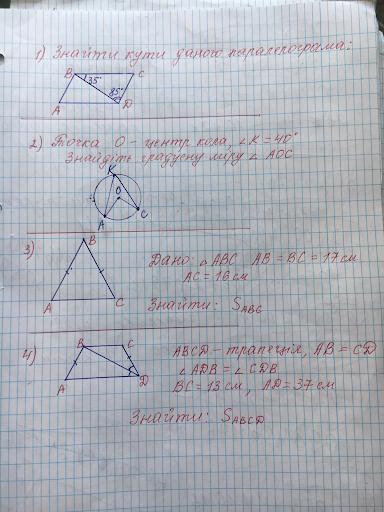 1) Знайти кути даного паралелограма:
B C
35°
85°
A D
2) Точка О - центр кола, ∠K = 40°
Знайдіть градусну міру ∠ AOC
K
O
A C
3) B
Дано: △ ABC AB = BC = 17 см
AC = 16 см
A C
Знайти: S ABC
4) B C
ABCD - трапеція, AB = CD
∠ ADB = ∠ CDB
A D
BC = 13 см, AD = 37 см
Знайти: S ABCD